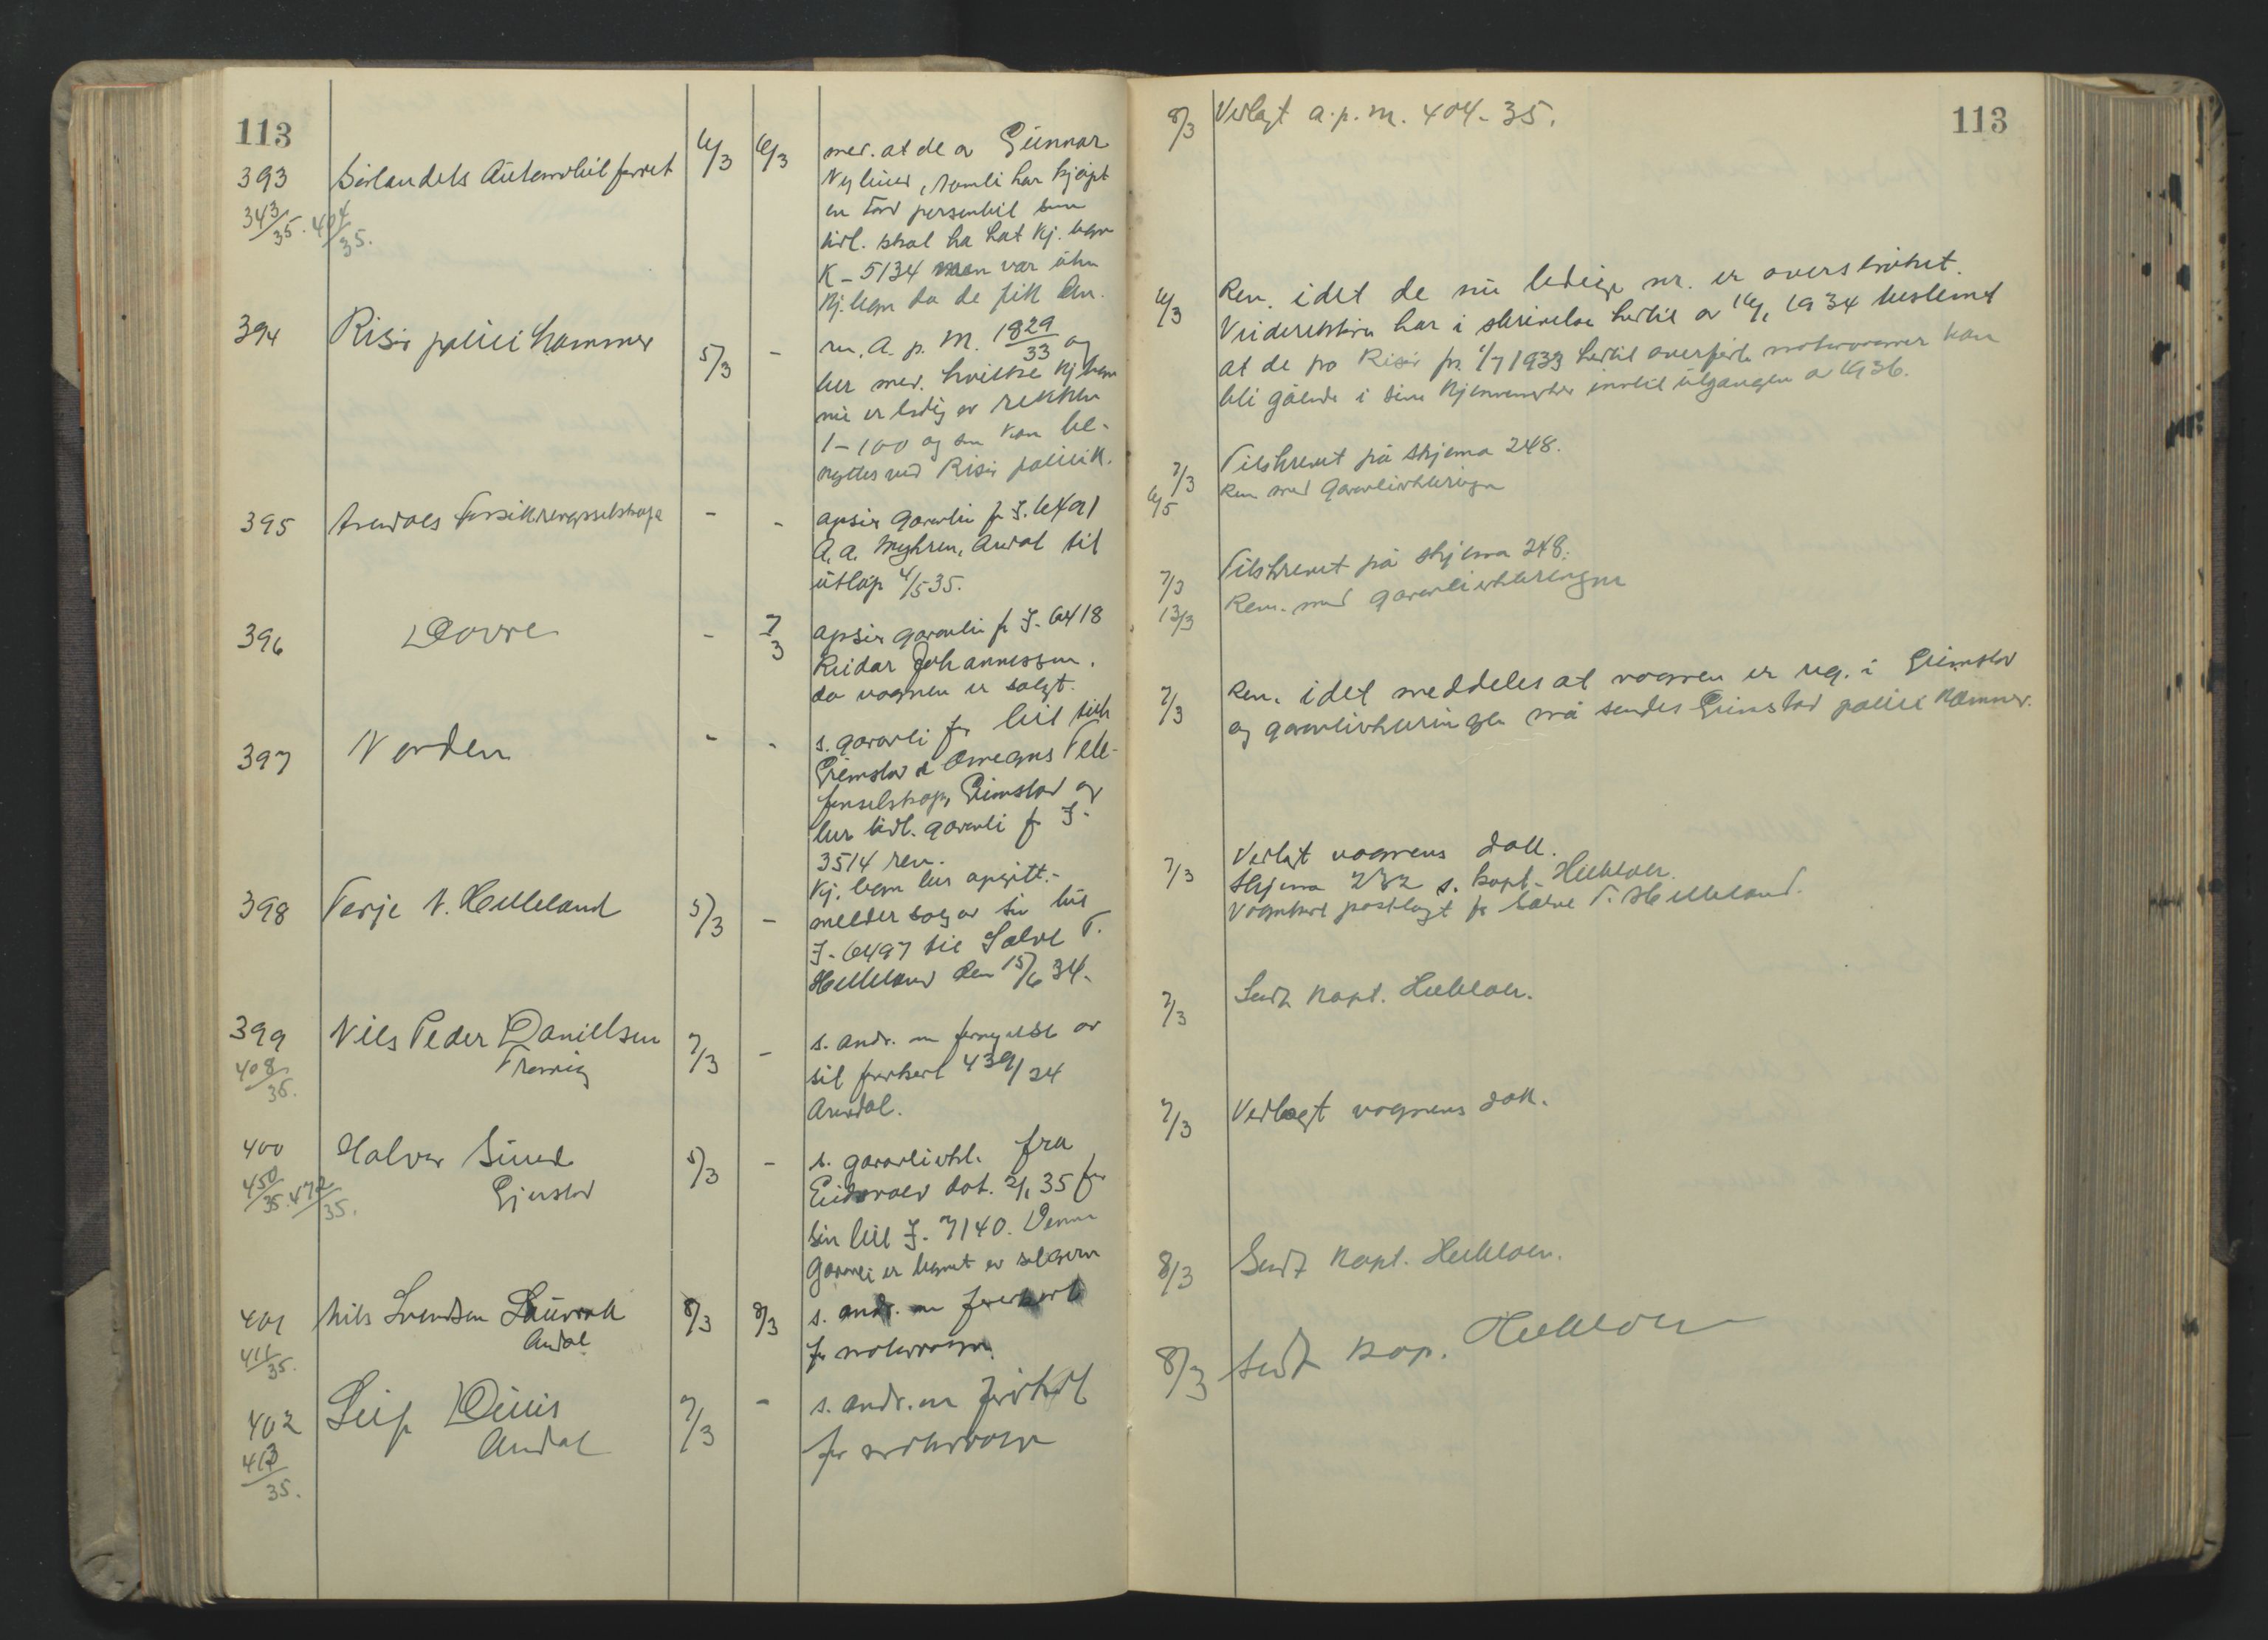 113
393 Sørlandets Automobilforret 6/3 6/3 med. at de av Gunnar
343/35. 404/35.
en Ford personbil som
tidl. skal ha hat kj. tegn
K-5134 men var uten
kj.tegn da de fik den.
394 Risør politikammer 5/3 - A. p. m. 1829/33 og
ber med. hvilke kj tegn
nu er ledig av rekken
1-100 og som kan be-
nyttes ved Risør politik.
395 Arendals Forsikringsselskap - - opsier garanti for I. 6491
A. A. Myhren, Arendal til
utløp 4/5 35.
396 Dovre - 7/3 opsier garanti for I-6418
Reidar Johannessen,
da vognen er solgt.
397 Norden - - s. garanti for bil tilh
Grimstad & Omegns Tele-
fonselskap, Grimstad og
ber tidl. garanti for I-
3514 ren.
Kj. tegn bes opgitt.-
398 Terje N. Helleland 5/3 - melder salg av sin bil
I-6497 til Salve T.
Helleland den 15/6 34.
399 Nils Peder Danielsen 7/3 - s. andr. om fornyelse av
408/35. Tromøy sit førerkort 439/34
Arendal.
400 Halvor Sund 5/3 - s. garantierkl. fra
450/35. 472/35. Gjerstad Eidsvold dat. 2/1 35 for
sin bil I-7140. Denne
garanti er tegnet av selgeren
401 Nils Svendsen 8/3 8/3 s. andr. om førerkort
411/35. Arendal for motorvogn.
402 Leif 7/3 - s. andr. om førerkort
413/35. Arendal for motorvogn
113
8/3 Vedlagt a.p.m. 404-35.
6/3 Ren. idet de nu ledige nr. er overstrøket.
Veidirektøren har i skrivelse hertil av 16/1 1934 bestemt
at de fra Risør pr. 1/7 1933 hertil overførte motorvogner kan
bli gående i sine kjennemerker inntil utgangen av 1936.
7/3 Tilskrevet på skjema 248.
6/5 Ren med garantierklæringen
7/3 Tilskrevet på skjema 248.
13/3 Ren. med garantierklæringen
7/3 Ren. idet meddeles at vognen er reg. i Grimstad
og garantierklæringen må sendes Grimstad politikammer.
7/3 Vedlagt vognens dok.
Skjema 232 s. kapt. Heldal.
Vognkort postlagt for Salve T. Helleland.
7/3 Sendt kapt. Heldal.
7/3 Vedlagt vognens dok.
8/3 Sendt kapt. Heldal.
8/3 Sendt kap. Heldal